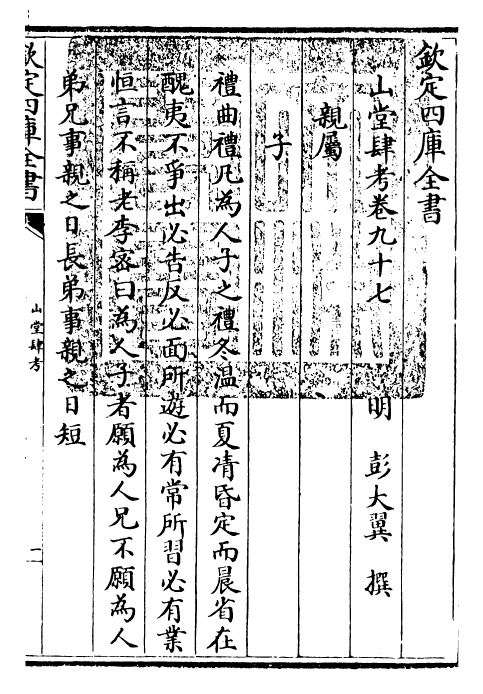 欽定四庫全書
山堂肆考卷九十七　明　彭大翼　撰
親屬
子
禮曲禮凡為人子之禮冬温而夏凊昏定而晨省在
醜夷不爭出必告反必面所遊必有常所習必有業
恒言不稱老李密曰為人子者願為人兄不願為人
弟兄事親之日長弟事親之日短
欽定四庫全書
山堂肆考
二